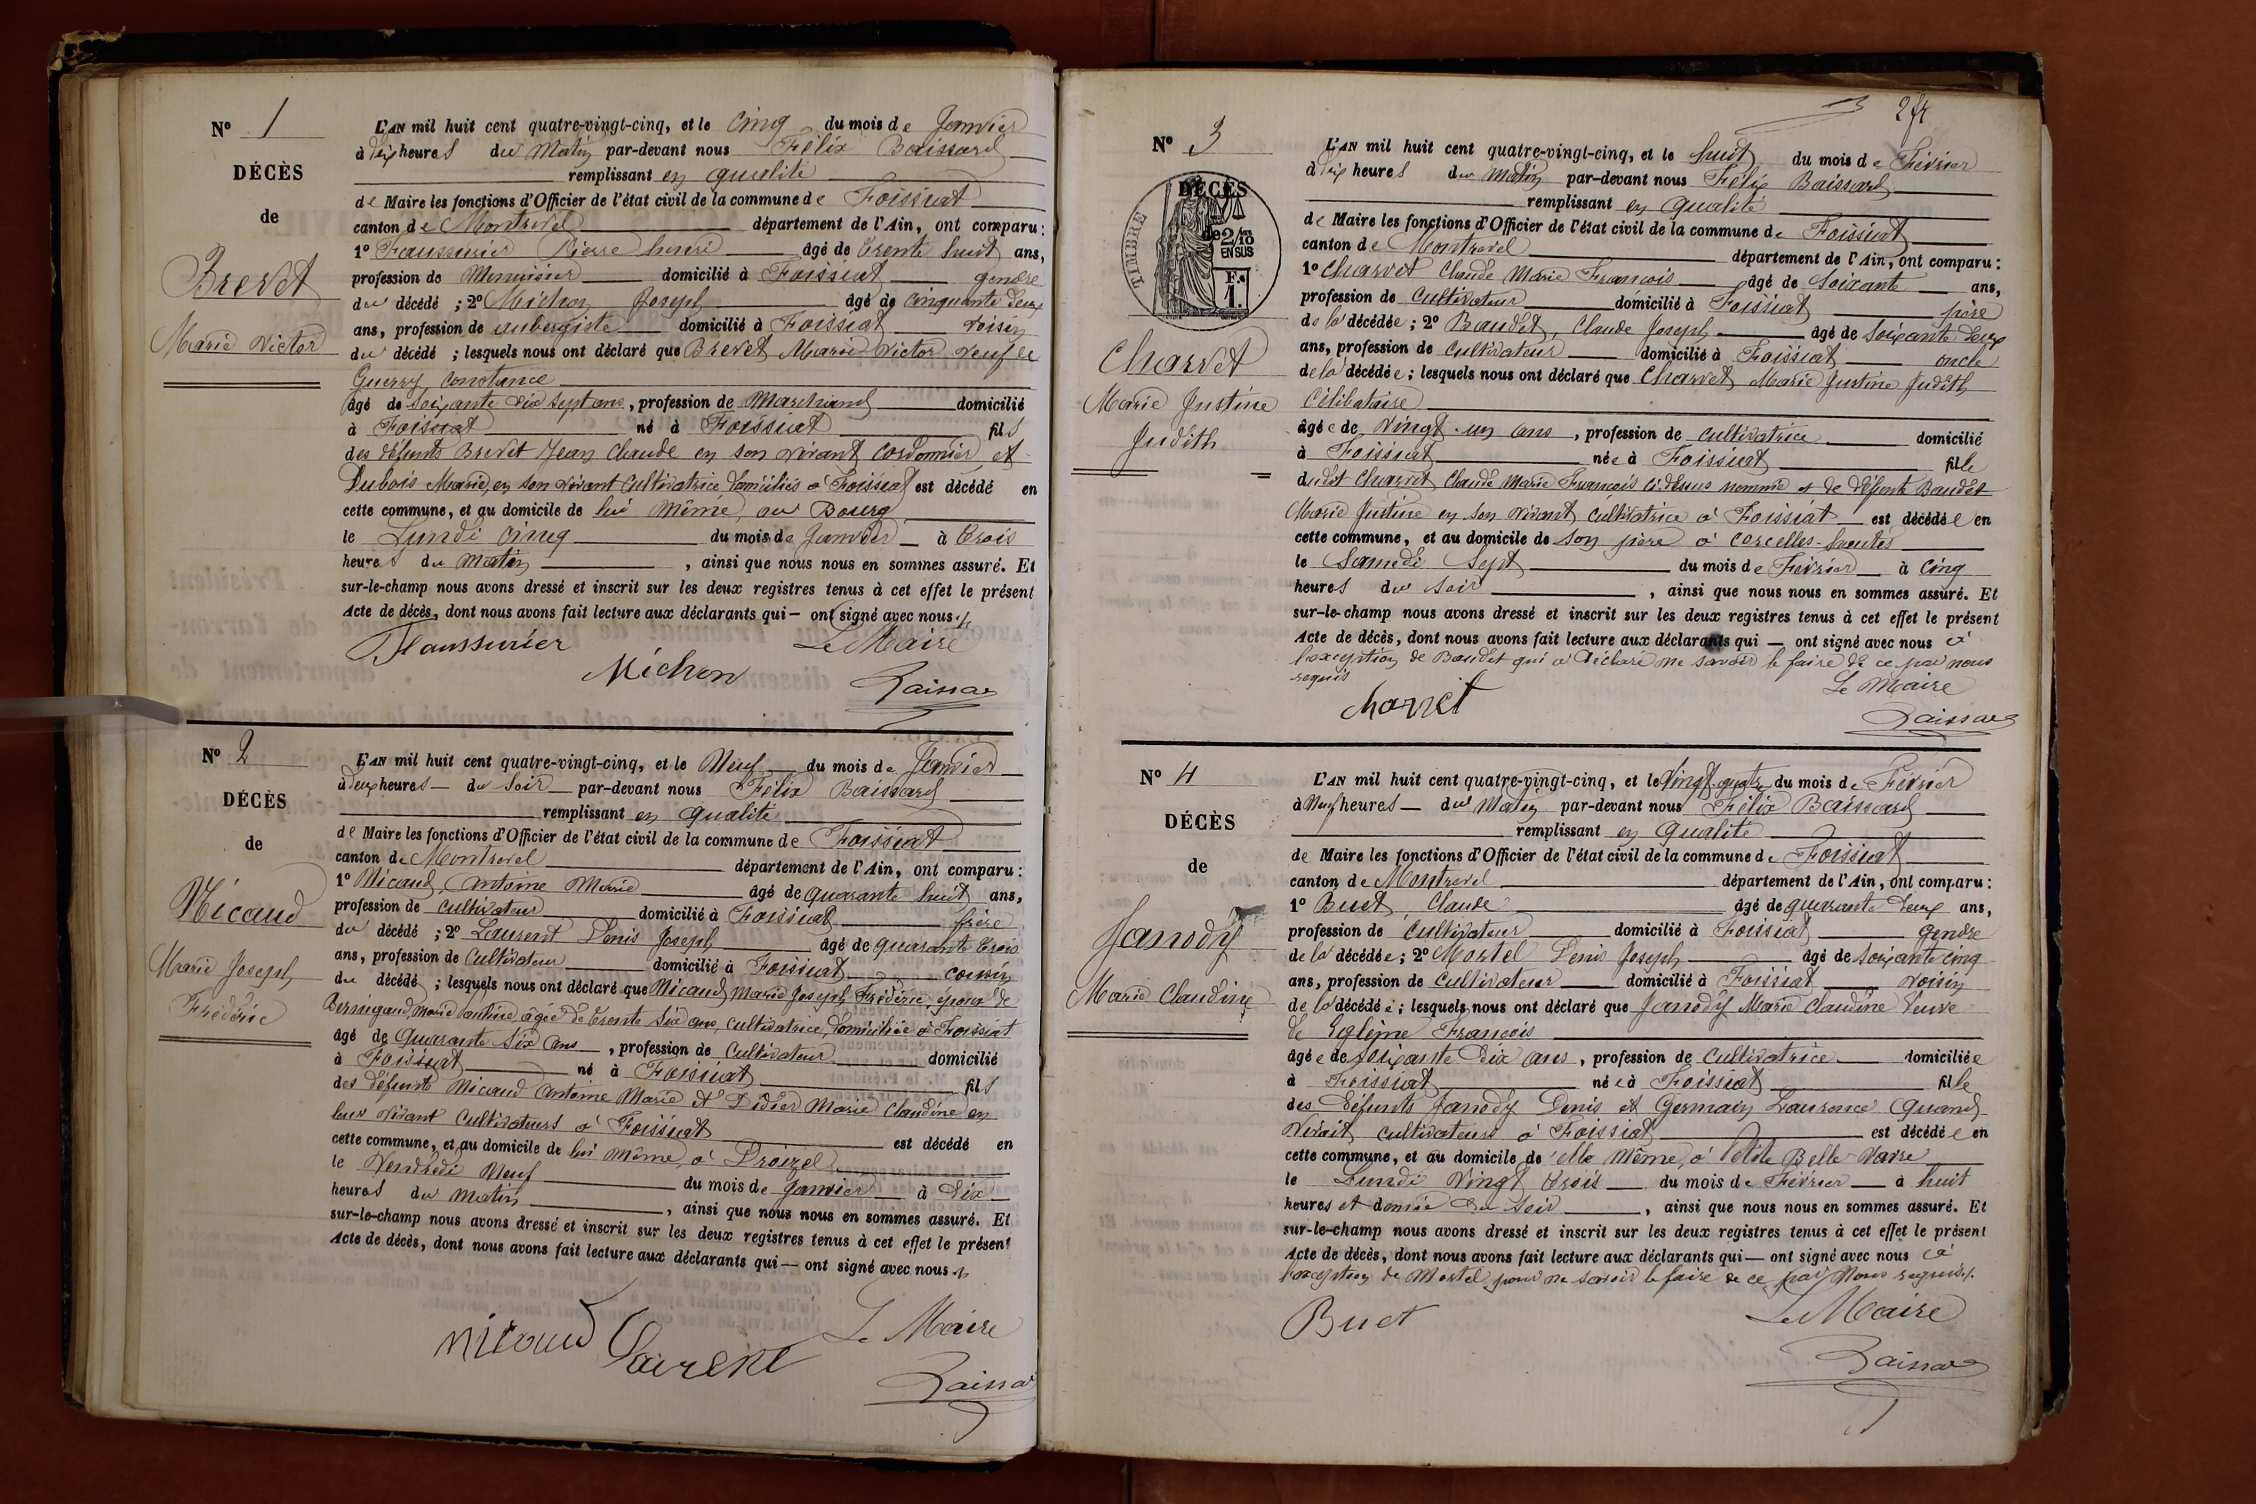 N° 1
DÉCÈS
de
Brevet
Marie Victor
L'AN mil huit cent quatre-vingt-cinq, et le cinq du mois de Janvier
à dix heures du Matin par-devant nous Félix Baissard
remplissant en qualité
de Maire les fonctions d'Officier de l'état civil de la commune de Foissiat
canton de Montrevel département de l'Ain, ont comparu :
1° Faussurier Pierre henri âgé de trente huit ans,
profession de Menuisier domicilié à Foissiat gendre
du décédé ; 2° Michon Joseph âgé de cinquante deux
ans, profession de aubergiste domicilié à Foissiat voisin
du décédé ; lesquels nous ont déclaré que Brevet Marie Victor veuf de
Guerry constance
âgé de soixante dix sept ans, profession de Marchand domicilié
à Foissiat né à Foissiat fils
des défunts Brevet Jean Claude en son vivant cordonnier et
Dubois Marie, en son vivant cultivatrice domiciliés à Foissiat est décédé en
cette commune, et au domicile de lui même, au Bourg
le Lundi cinq du mois de Janvier à trois
heures du Matin, ainsi que nous nous en sommes assuré. Et
sur-le-champ nous avons dressé et inscrit sur les deux registres tenus à cet effet le présent
Acte de décès, dont nous avons fait lecture aux déclarants qui — ont signé avec nous
Faussurier
Le Maire
Michon
Baissard
N° 2
DÉCÈS
de
Nicaud
Marie Joseph
Frédéric
L'AN mil huit cent quatre-vingt-cinq, et le Neuf du mois de Janvier
à deux heures du Soir par-devant nous Félix Baissard
remplissant en qualité
de Maire les fonctions d'Officier de l'état civil de la commune de Foissiat
canton de Montrevel département de l'Ain, ont comparu :
1° Nicaud, Antoine Marie âgé de quarante huit ans,
profession de cultivateur domicilié à Foissiat frère
du décédé ; 2° Laurent Denis Joseph âgé de quarante trois
ans, profession de Cultivateur domicilié à Foissiat cousin
du décédé ; lesquels nous ont déclaré que Nicaud Marie Joseph Frédéric époux de
Bernigaud, Marie Pauline âgée de trente six ans, cultivatrice, domiciliée à Foissiat
âgé de Quarante six ans, profession de Cultivateur domicilié
à Foissiat né à Foissiat fils
des défunts Nicaud Antoine Marie et Didier Marie Claudine en
leur vivant cultivateurs à Foissiat est décédé en
cette commune, et au domicile de lui même, à Proizel
le Vendredi Neuf du mois de Janvier à Dix
heures du Matin, ainsi que nous nous en sommes assuré. Et
sur-le-champ nous avons dressé et inscrit sur les deux registres tenus à cet effet le présent
Acte de décès, dont nous avons fait lecture aux déclarants qui — ont signé avec nous
nicaud Laurent
Le Maire
Baissard
N° 3
DÉCÈS
de
TIMBRE
2/10 EN SUS
F.
1.
Charvet
Marie Justine
Judith
L'AN mil huit cent quatre-vingt-cinq, et le huit du mois de Février
à dix heures du Matin par-devant nous Félix Baissard
remplissant en qualité
de Maire les fonctions d'Officier de l'état civil de la commune de Foissiat
canton de Montrevel département de l'Ain, ont comparu :
1° Charvet Claude Marie François âgé de soixante ans,
profession de cultivateur domicilié à Foissiat père
de la décédée ; 2° Baudet, Claude Joseph âgé de soixante deux
ans, profession de cultivateur domicilié à Foissiat oncle
de la décédée ; lesquels nous ont déclaré que Charvet Marie Justine Judith
Célibataire
âgée de vingt-un ans, profession de cultivatrice domicilié
à Foissiat née à Foissiat fille
dudit Charvet Claude Marie François ci-dessus nommé et de défunte Baudet
Marie Justine en son vivant cultivatrice à Foissiat est décédée en
cette commune, et au domicile de son père à corcelles-hautes
le Samedi Sept du mois de Février à Cinq
heures du soir, ainsi que nous nous en sommes assuré. Et
sur-le-champ nous avons dressé et inscrit sur les deux registres tenus à cet effet le présent
Acte de décès, dont nous avons fait lecture aux déclarants qui — ont signé avec nous à
l'exception de Baudet qui a déclaré ne savoir le faire de ce par nous
requis
Le Maire
Charvet
Baissard
N° 4
DÉCÈS
de
Janody
Marie Claudine
L'AN mil huit cent quatre-vingt-cinq, et le vingt-quatre du mois de Février
à Neuf heures du Matin par-devant nous Félix Baissard
remplissant en qualité
de Maire les fonctions d'Officier de l'état civil de la commune de Foissiat
canton de Montrevel département de l'Ain, ont comparu :
1° Buet, Claude âgé de quarante deux ans,
profession de cultivateur domicilié à Foissiat gendre
de la décédée ; 2° Mortel Denis Joseph âgé de soixante cinq
ans, profession de cultivateur domicilié à Foissiat voisin
de la décédée ; lesquels nous ont déclaré que Janody Marie Claudine veuve
de Egléjme François
âgée de soixante Dix ans, profession de cultivatrice domiciliée
à Foissiat née à Foissiat fille
des défunts Janody Denis et Germain Laurence Quand
vivait cultivateurs à Foissiat est décédée en
cette commune, et au domicile de elle même, à Petite Belle Vavre
le Lundi vingt trois du mois de Février à huit
heures et demie du Soir, ainsi que nous nous en sommes assuré. Et
sur-le-champ nous avons dressé et inscrit sur les deux registres tenus à cet effet le présent
Acte de décès, dont nous avons fait lecture aux déclarants qui — ont signé avec nous à
l'exception de Mortel pour ne savoir le faire de ce par Nous requis
Buet
Le Maire
Baissard